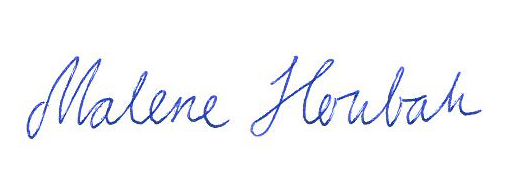 Malene Houbak